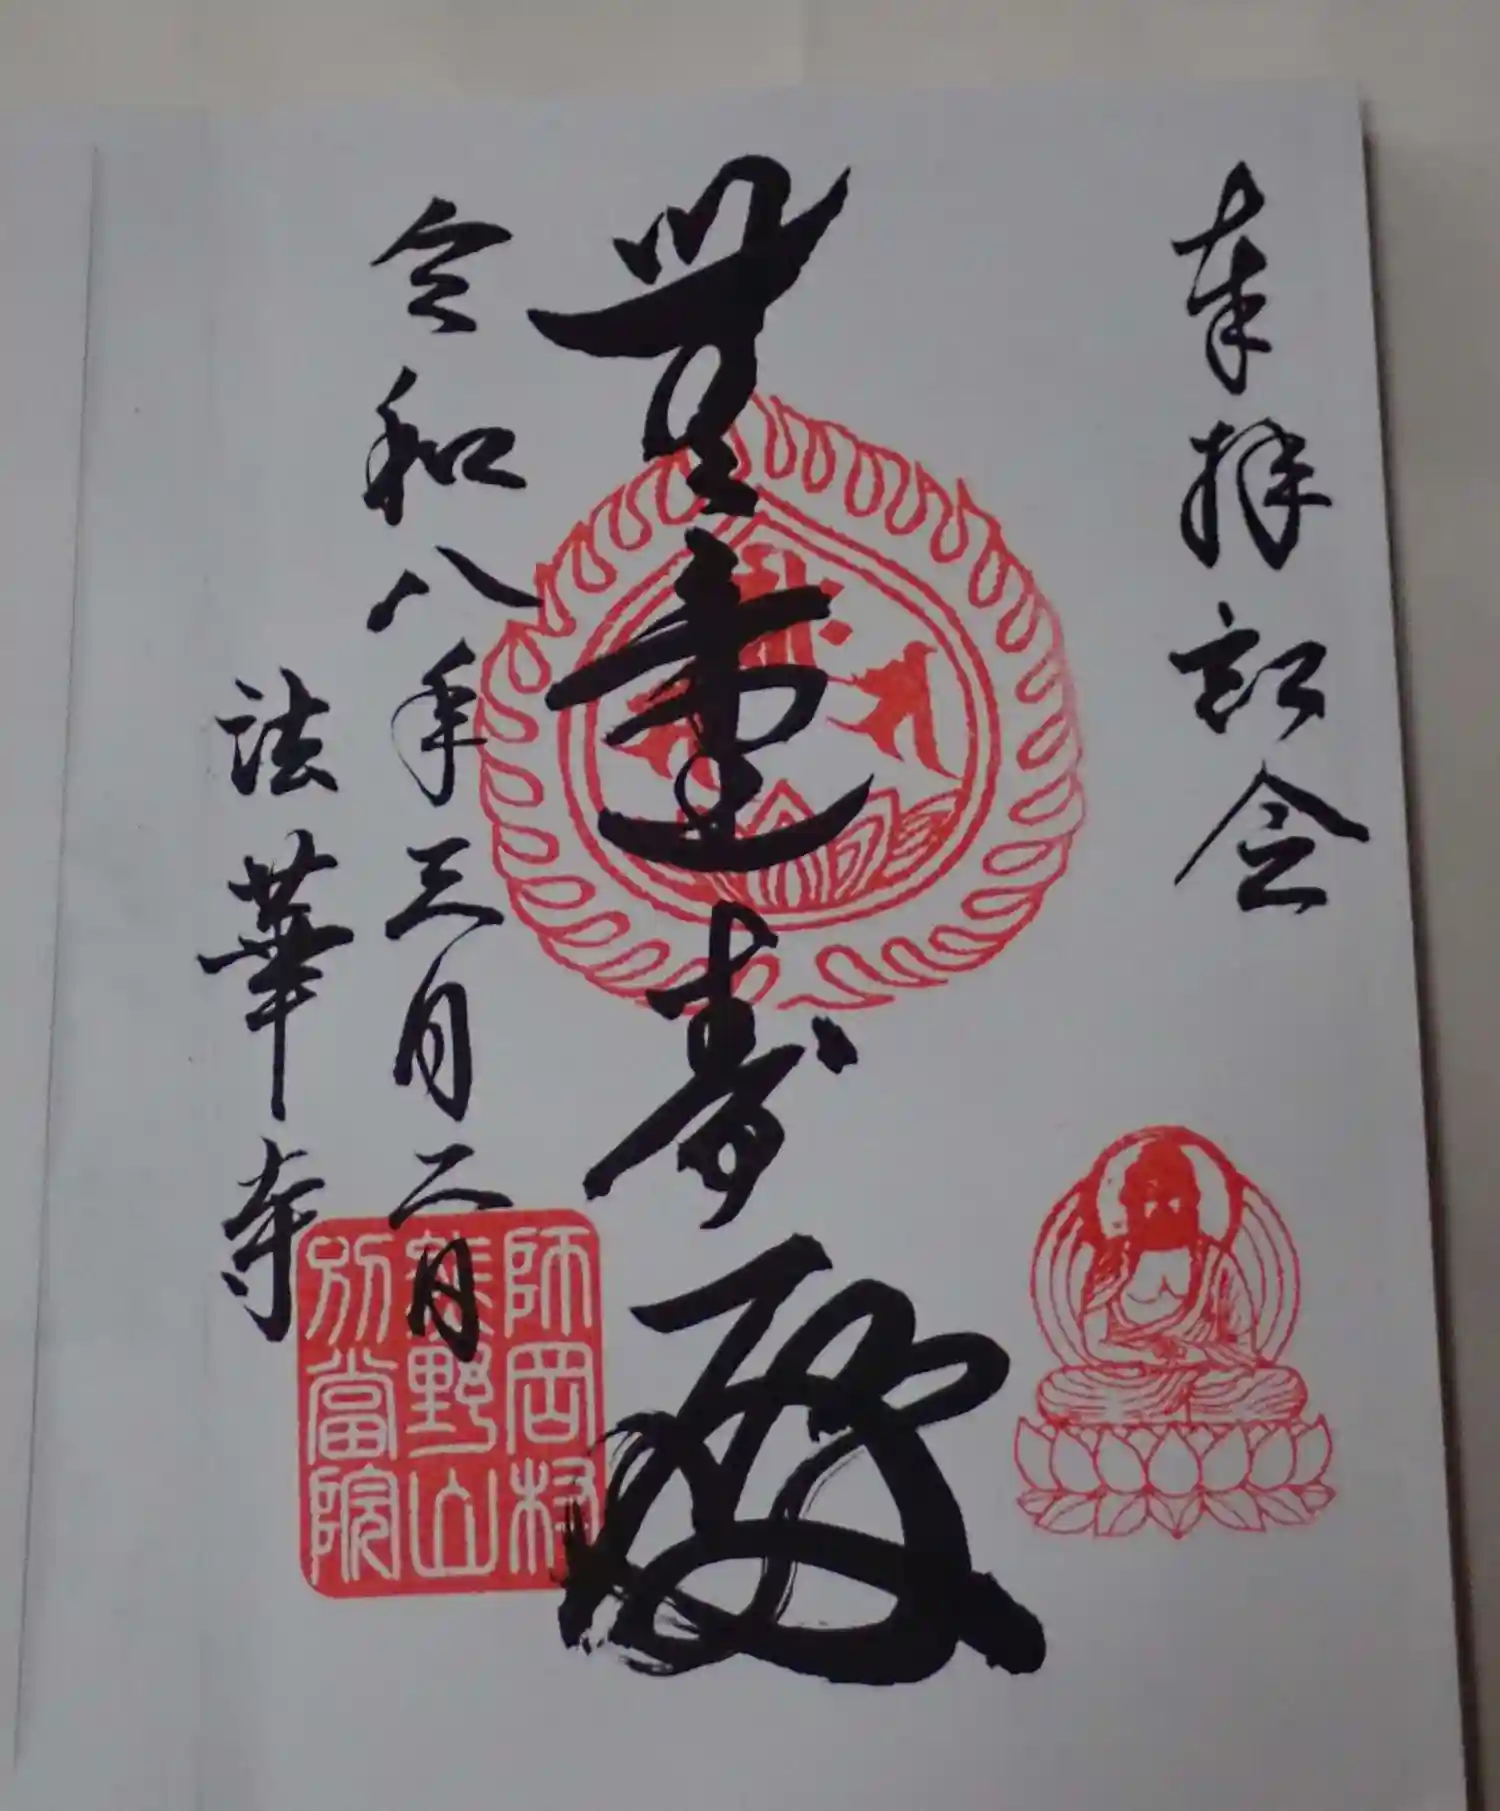 奉拝記念
無量寿殿
令和八年三月二日
法華寺
師岡村
熊野山
別當院